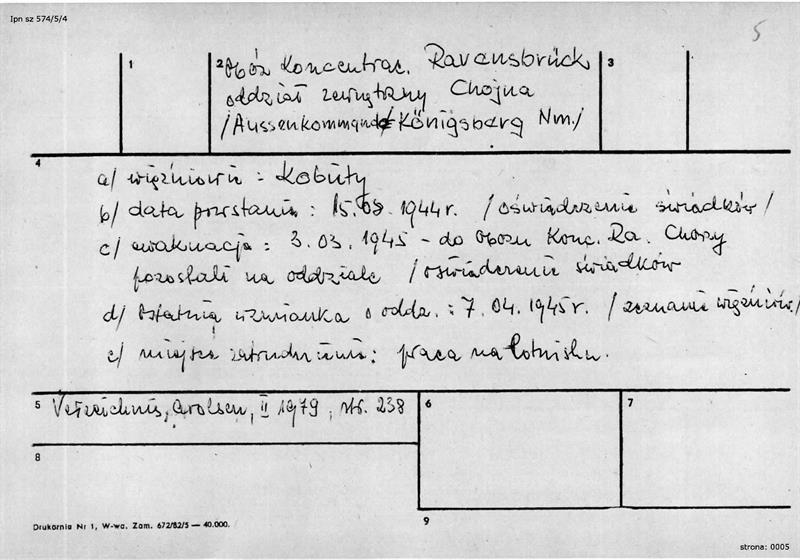 Ipn sz 574/5/4
5
1
2 Obóz Koncentrac. Ravansbrück
oddział zewnętrzny Chojna
/Aussenkommando Königsberg Nm./
3
4
a/ więźniowie : Kobiety
b/ data powstania : 15.09.1944 r. /oświadczenie świadków/
c/ ewakuacja : 3.03.1945 - do obozu Konc. Ra. Chorzy
pozostali na oddziale /oświadczenie świadków
d/ Ostatnia wzmianka o oddz. : 7.04.1945 r. /zeznanie więźniów./
e/ miejsce zatrudnienia : praca na lotnisku.
5 Verzeichnis, Arolsen, II 1979, str. 238
6
7
8
Drukarnia Nr 1, W-wa, Zam. 672/82/5 — 40.000.
9
strona: 0005